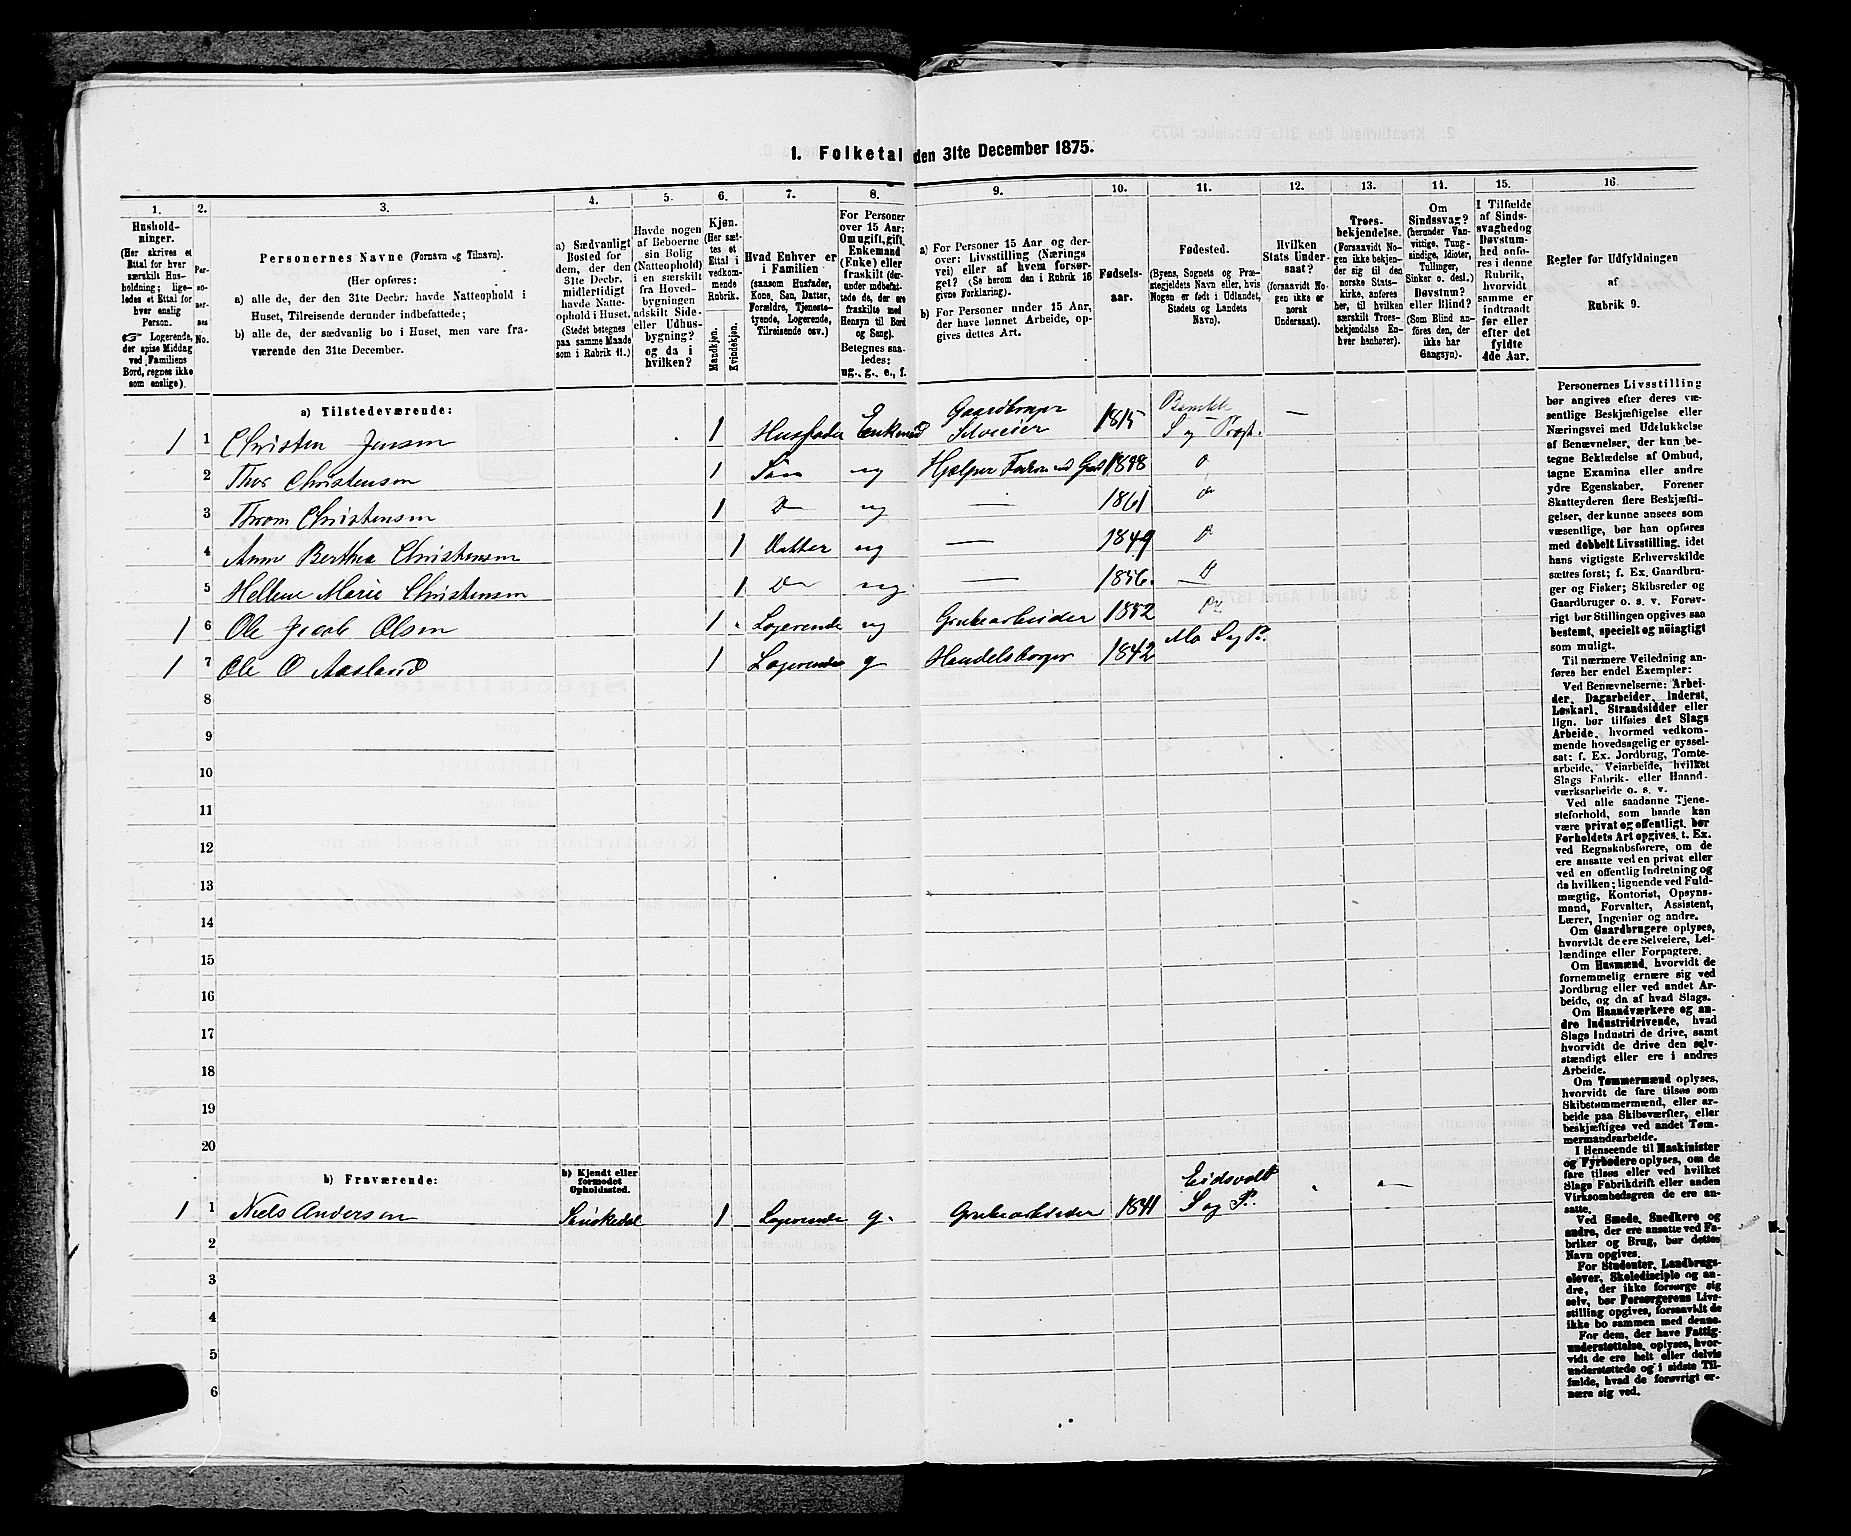 1. Folketal den 31te December 1875.
1. 2. 3. 4. 5. 6. 7. 8. 9. 10. 11. 12. 13. 14. 15. 16.
Hushold-
ninger.
(Her skrives et
Ettal for hver
særskilt Hus-
holdning; lige-
ledes et Ettal for
hver enslig
Person.
☞ Logerende,
der spise Middag
ved Familiens
Bord, regnes ikke
som enslige).
Per-
so-
ner-
nes
No.
Personernes Navne (Fornavn og Tilnavn).
(Her opføres:
a) alle de, der den 31te Decbr. havde Natteophold i
Huset, Tilreisende derunder indbefattede;
b) alle de, der sædvanlig bo i Huset, men vare fra-
værende den 31te December.
a) Sædvanligt
Bosted for
dem, der den
31te Decbr.
midlertidigt
havde Natte-
ophold i Huset.
(Stedet betegnes
paa samme Maade
som i Rubrik 11.)
Havde nogen
af Beboerne
sin Bolig
(Natteophold)
i en særskilt
fra Hoved-
bygningen
adskilt Side-
eller Udhus-
bygning?
og da i
hvilken?
Kjøn.
(Her sæt-
tes et
Ettal i
vedkom-
mende
Rubrik.
Mandkjøn. Kvindekjøn.
Hvad Enhver er
i Familien
(saasom Husfader,
Kone, Søn, Datter,
Forældre, Tjeneste-
tyende, Logerende,
Tilreisende osv.)
For Personer
over 15 Aar:
Om ugift, gift,
Enkemand
(Enke) eller
fraskilt (der-
under indbefat-
tede de, der ere
fraskilte med
Hensyn til Bord
og Seng).
Betegnes saa-
ledes:
ug., g., e., f.
a) For Personer 15 Aar og der-
over: Livsstilling (Nærings
vei) eller af hvem forsør-
get? (Se herom den i Rubrik 16
givne Forklaring).
b) For Personer under 15 Aar,
der have lønnet Arbeide, op-
gives dettes Art.
Fødsels-
aar.
Fødested.
(Byens, Sognets og Præ-
stegjeldets Navn eller, hvis
Nogen er født i Udlandet,
Stedets og Landets
Navn).
Hvilken
Stats Under-
saat?
(forsaavidt No-
gen ikke er
norsk
Undersaat).
Troes-
bekjendelse.
(Forsaavidt No-
gen ikke bekjen-
der sig til den
norske Stats-
kirke, anføres
her, til hvilken
særskilt Troes-
bekjendelse En-
hver henhører).
Om
Sindssvag?
(herunder Van-
vittige, Tung-
sindige, Idioter,
Tullinger,
Sinker o. desl.)
Døvstum?
eller Blind?
(Som Blind an-
føres den, der
ikke har
Gangsyn).
I Tilfælde
af Sinds-
svaghed og
Døvstum-
hed anfø-
res i denne
Rubrik,
hvorvidt
samme er
indtraadt
før eller
efter det
fyldte
4de Aar.
Regler for Udfyldningen
af
Rubrik 9.
a) Tilstedeværende:
1 1 Christen Jensen 1 Husfader Enkemd Gaardbruger Selveier 1815 Bamble S og Præst. —
2 Thor Christensen 1 Søn ug Hjælper Faderen ved Gaard 1848
3 Throm Christensen 1 Do ug — 1861
4 Anne Berthea Christensen 1 Datter ug — 1849
5 Hellene Marie Christensen 1 Do ug. — 1856.
1 6 Ole Jacob Olsen 1 Logerende ug Grubearbeider 1852
1 7 Ole O Aasland 1 Logerende g Handelsborger 1842 Mo S og P.
8
9
10
11
12
13
14
15
16
17
18
19
20
b) Fraværende:
b) Kjendt eller
formodet
Opholdssted.
1 1 Niels Andersen 1 Logerende g. Grubearbeider 1841 Eidsvold S og P.
2
3
4
5
6
Personernes Livsstilling
bør angives efter deres væ-
sentlige Beskjæftigelse eller
Næringsvei med Udelukkelse
af Benævnelser, der kun be-
tegne Beklædelse af Ombud,
tagne Examina eller andre
ydre Egenskaber. Forener
Skatteyderen flere Beskjæfti-
gelser, der kunne ansees som
væsentlige, bør han opføres
med dobbelt Livsstilling, idet
hans vigtigste Erhvervskilde
sættes først; f. Ex. Gaardbru-
ger og Fisker; Skibsreder og
Gaardbruger o. s. v. Forøv-
rigt bør Stillingen opgives saa
bestemt, specielt og nøiagtigt
som muligt.
Til nærmere Veiledning an-
føres her endel Exempler:
Ved Benævnelserne: Arbei-
der, Dagarbeider, Inderst,
Løskarl, Strandsidder eller
lign. bør tilføies det Slags
Arbeide, hvormed vedkom-
mende hovedsagelig er syssel-
sat; f. Ex. Jordbrug, Tomte-
arbeide, Veiarbeide, hvilket
Slags Fabrik- eller Haand-
værksarbeide o. s. v.
Ved alle saadanne Tjene-
steforhold, som baade kan
være privat og offentligt, bør
Forholdets Art opgives, t. Ex.
ved Regnskabsførere, om de
ere ansatte ved en privat eller
ved en offentlig Indretning og
da hvilken; lignende ved Fuld-
mægtig, Kontorist, Opsyns-
mand, Forvalter, Assistent,
Lærer, Ingeniør og andre.
Om Gaardbrugere oplyses,
hvorvidt de ere Selveiere, Lei-
lændinge eller Forpagtere.
Om Husmænd, hvorvidt de
fornemmelig ernære sig ved
Jordbrug eller ved andet Ar-
beide, og da af hvad Slags.
Om Haandværkere og an-
dre Industridrivende, hvad
Slags Industri de drive, samt
hvorvidt de drive den selv-
stændigt eller ere i andres
Arbeide.
Om Tømmermænd oplyses,
hvorvidt de fare tilsøs som
Skibstømmermænd, eller ar-
beide paa Skibsværfter, eller
beskjæftiges ved andet Tøm-
mermandsarbeide.
I Henseende til Maskinister
og Fyrbødere oplyses, om de
fare tilsøs eller ved hvilket
Slags Fabrikdrift eller anden
Virksomhedsgren de ere an-
satte.
Ved Smede, Snedkere og
andre, der ere ansatte ved Fa-
briker og Brug, bør dettes
Navn opgives.
For Studenter, Landbrugs-
elever, Skoledisciple og an-
dre, der ikke forsørge sig
selv, bør Forsørgerens Livs-
stilling opgives, forsaavidt de
ikke bo sammen med denne.
For dem, der have Fattig-
understøttelse, oplyses, hvor-
vidt de ere helt eller delvis
understøttede og i sidste Til-
fælde, hvad de forøvrigt er-
nære sig ved.